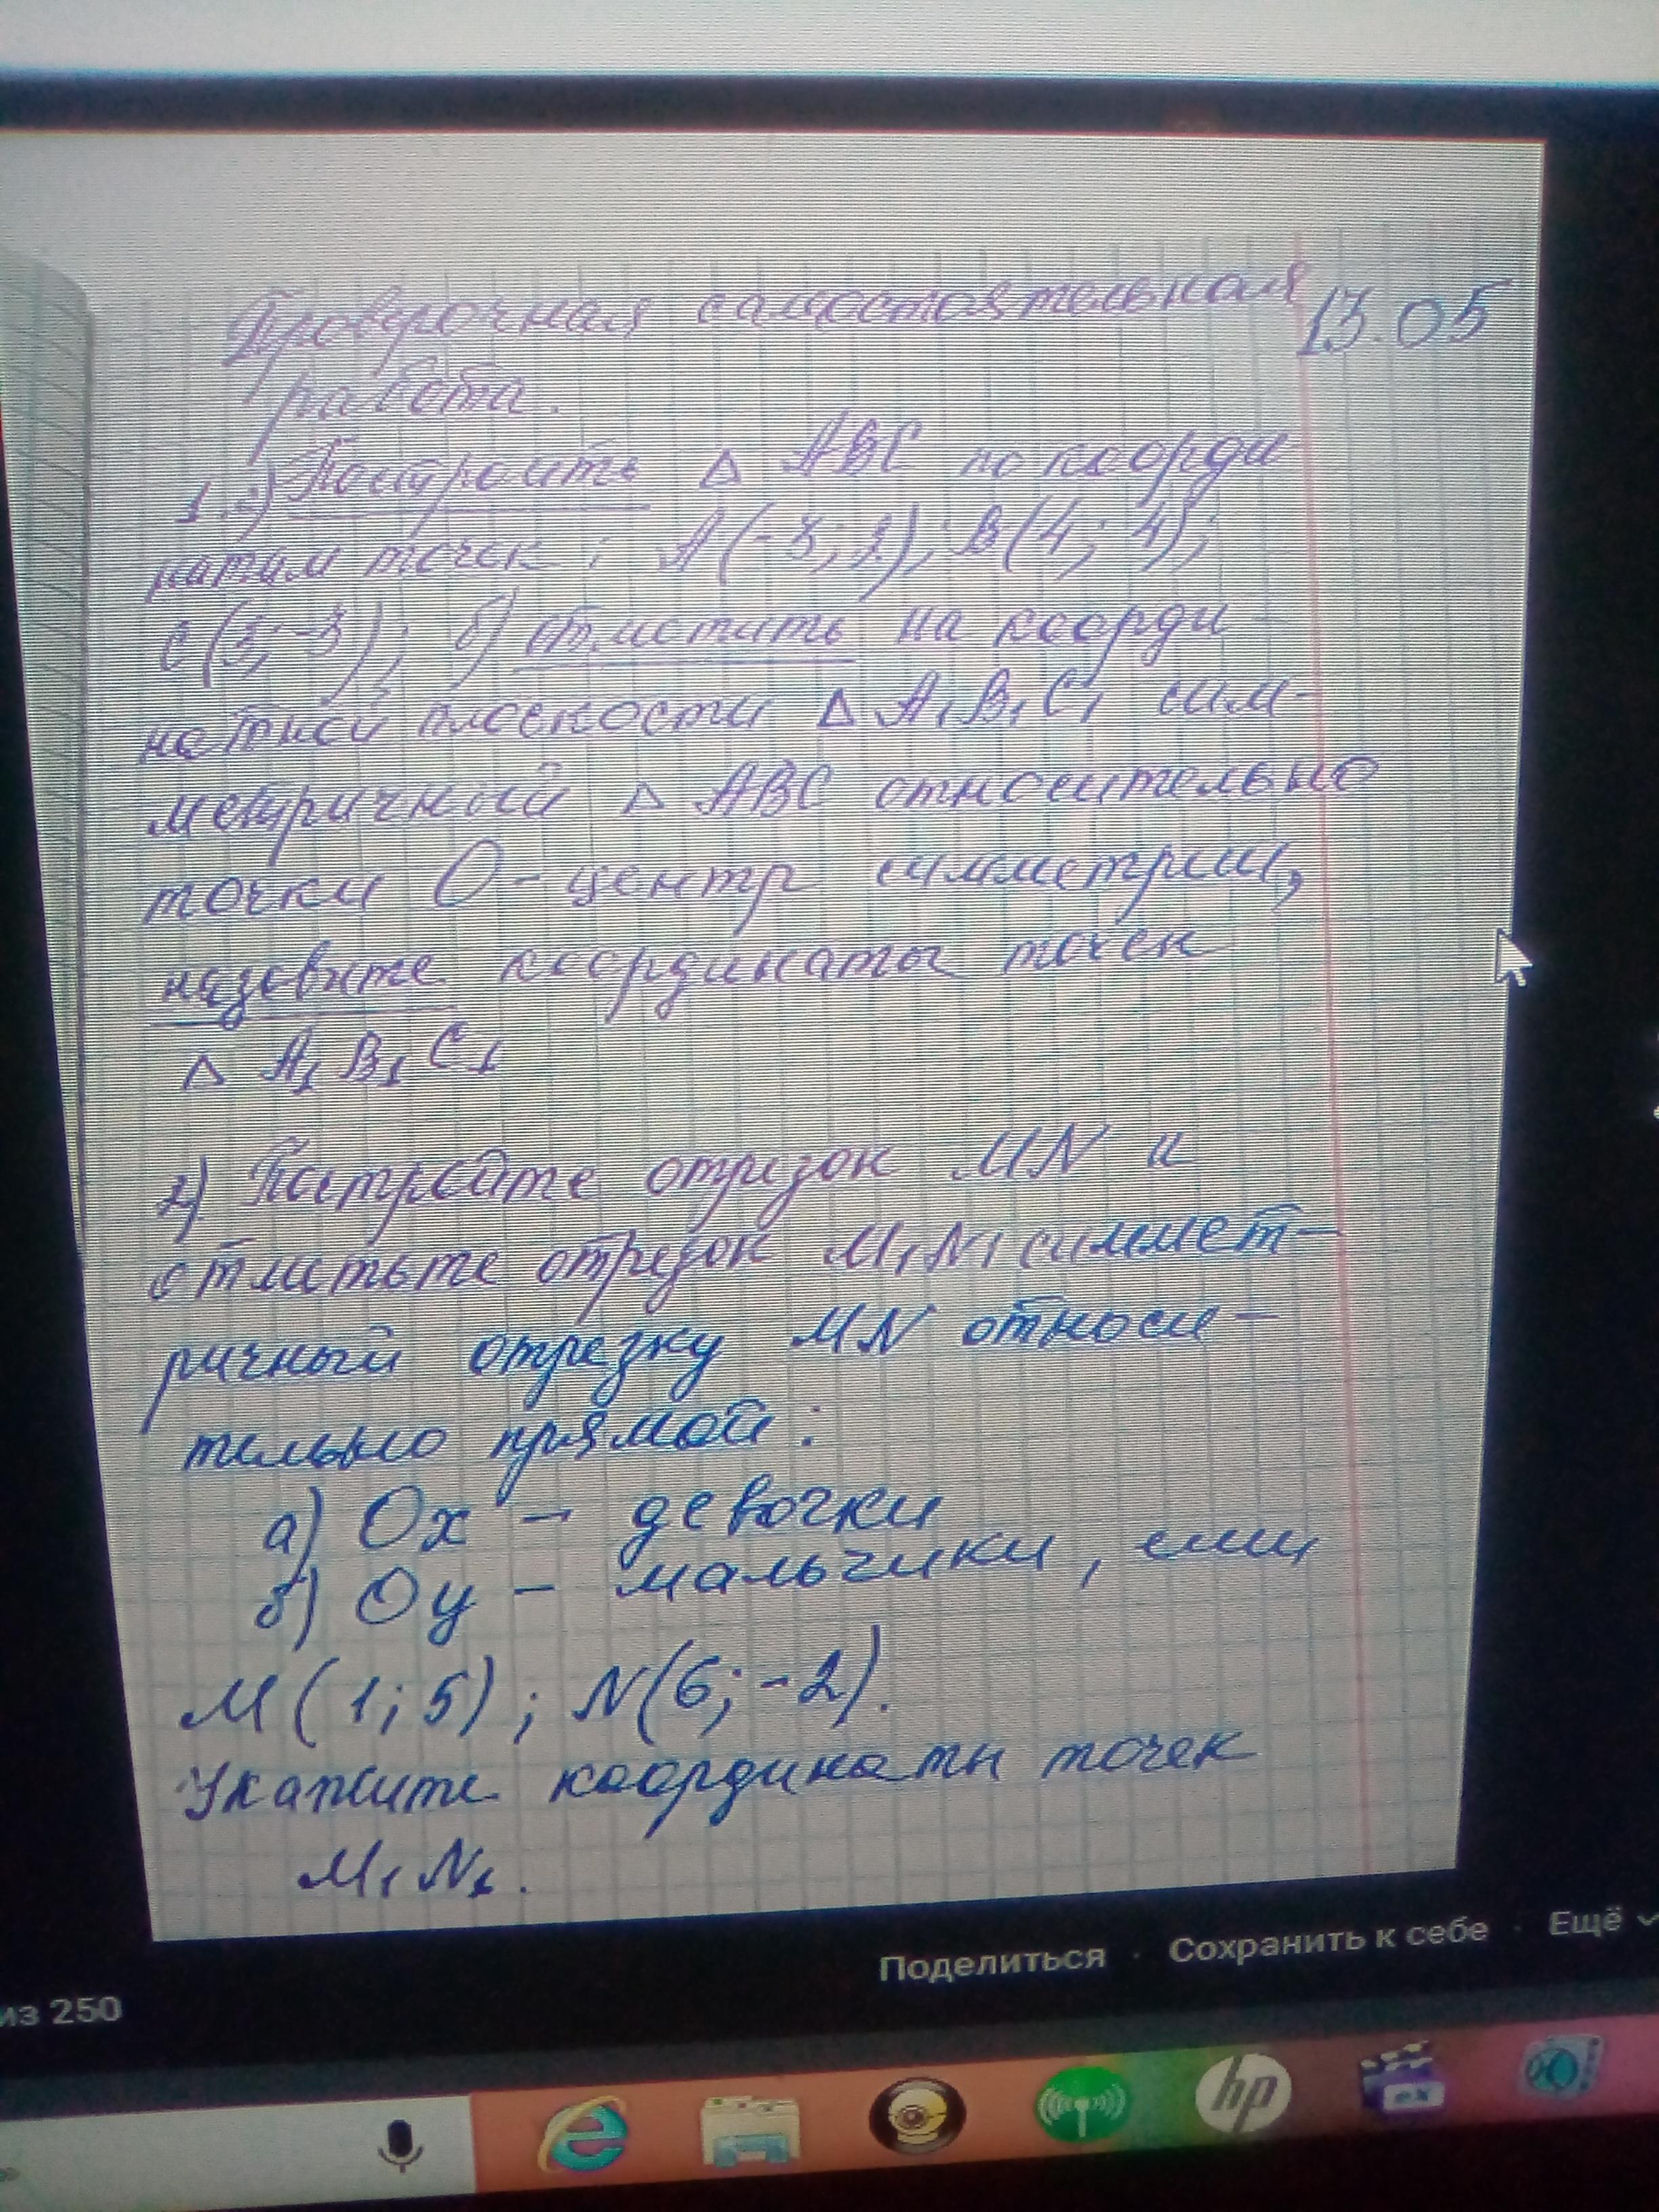 Проверочная самостоятельная 13.05
работа.
1.а) Построить △ ABC по коорди
натам точек: A(-8; 2), B(4; 4);
C(3; -3); б) отметить на коорди
натной плоскости △ A₁B₁C₁ сим-
метричный △ ABC относительно
точки О - центр симметрии,
назовите координаты точек
△ A₁B₁C₁
2) Постройте отрезок MN и
отметьте отрезок M₁N₁ симмет-
ричный отрезку MN относи-
тельно прямой:
а) Ox - девочки
б) Oy - мальчики, если
M(1; 5); N(6; -2).
Укажите координаты точек
M₁N₁.
Поделиться · Сохранить к себе · Ещё
из 250
hp